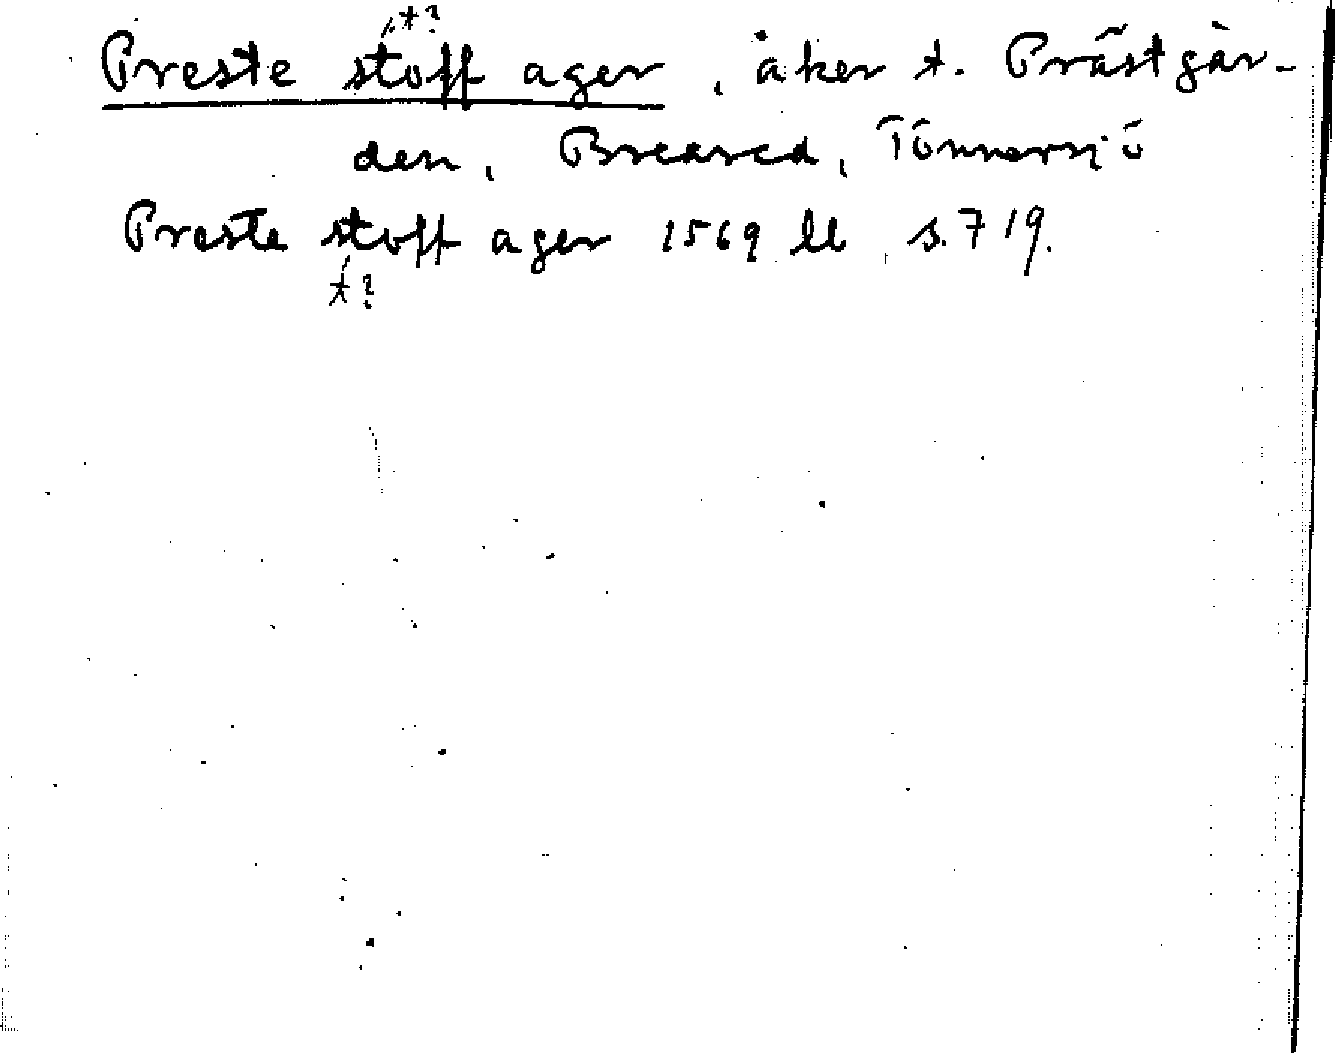 t?
Preste stoff ager, åker t. Prästgår-
den, Breared, Tönnersjö
Preste stoff ager 1569 ll s. 719.
t?